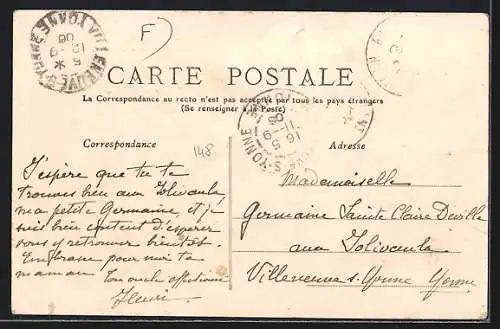 F
VILLENEUVE-S-YONNE YONNE
CARTE POSTALE
La Correspondance au recto n'est pas acceptée par tous les pays étrangers
(Se renseigner à la Poste)
Correspondance
148
Adresse
J'espère que tu te
trouves bien aux Jolivaults
ma petite Germaine, et je
suis bien content d'espérer
vous y retrouver bientôt.
Embrasse pour moi ta
maman. Ton oncle affectionné
Henri
Mademoiselle
Germaine Sainte Claire Deville
aux Jolivaults
Villeneuve s. Yonne Yonne